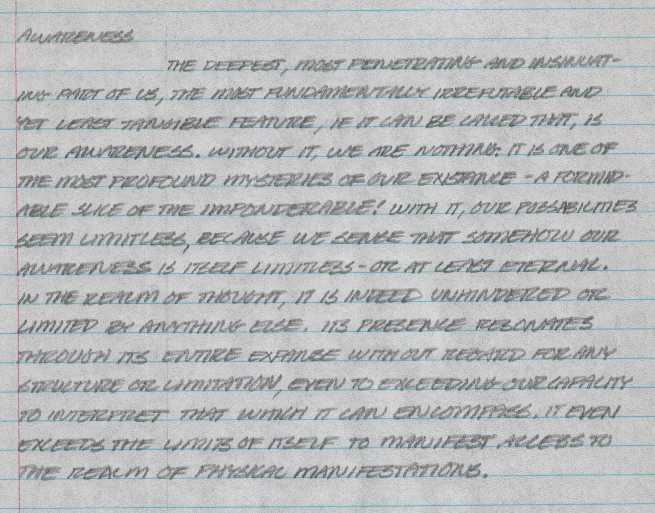 AWARENESS
THE DEEPEST, MOST PENETRATING AND INSINUAT-
ING PART OF US, THE MOST FUNDAMENTALLY IRREFUTABLE AND
YET LEAST TANGIBLE FEATURE, IF IT CAN BE CALLED THAT, IS
OUR AWARENESS. WITHOUT IT, WE ARE NOTHING. IT IS ONE OF
THE MOST PROFOUND MYSTERIES OF OUR EXISTANCE - A FORMID-
ABLE SLICE OF THE IMPONDERABLE! WITH IT, OUR POSSABILITIES
SEEM LIMITLESS, BECAUSE WE SENSE THAT SOMEHOW OUR
AWARENESS IS ITSELF LIMITLESS - OR AT LEAST ETERNAL.
IN THE REALM OF THOUGHT, IT IS INDEED UNHINDERED OR
LIMITED BY ANYTHING ELSE. ITS PRESENCE RESONATES
THROUGH ITS ENTIRE EXPANSE WITHOUT REGARD FOR ANY
STRUCTURE OR LIMITATION, EVEN TO EXCEEDING OUR CAPACITY
TO INTERPRET THAT WHICH IT CAN ENCOMPASS. IT EVEN
EXCEEDS THE LIMITS OF ITSELF TO MANIFEST ACCESS TO
THE REALM OF PHYSICAL MANIFESTATIONS.